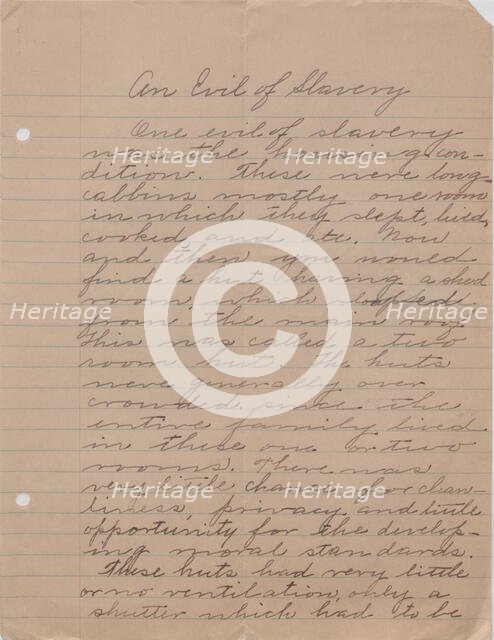 An Evil of Slavery
One evil of slavery
was the housing con-
dition. These were long
cabbins mostly one room
in which they slept, lived,
cooked and ate. Now
and then you would
find a hut having a shed
room which sloped
from the main roof
This was called a two
room hut. The huts
were generally over
crowded, since the
entire family lived
in these one or two
rooms. There was
very little chance for clean-
liness, privacy and little
opportunity for the develop-
ing moral standards.
These huts had very little
or no ventilation, only a
shutter which had to be
Heritage
Heritage
Heritage
Heritage
Heritage
Heritage
Heritage
Heritage
Heritage
C